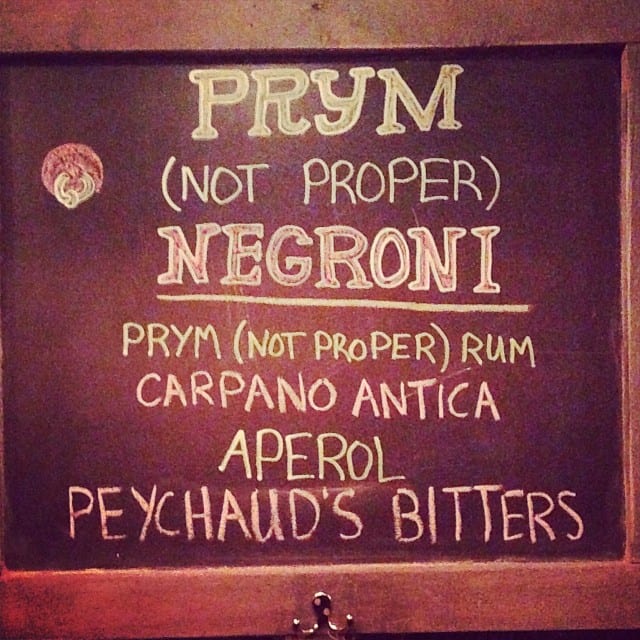 PRYM
(NOT PROPER)
NEGRONI
PRYM (NOT PROPER) RUM
CARPANO ANTICA
APEROL
PEYCHAUD'S BITTERS